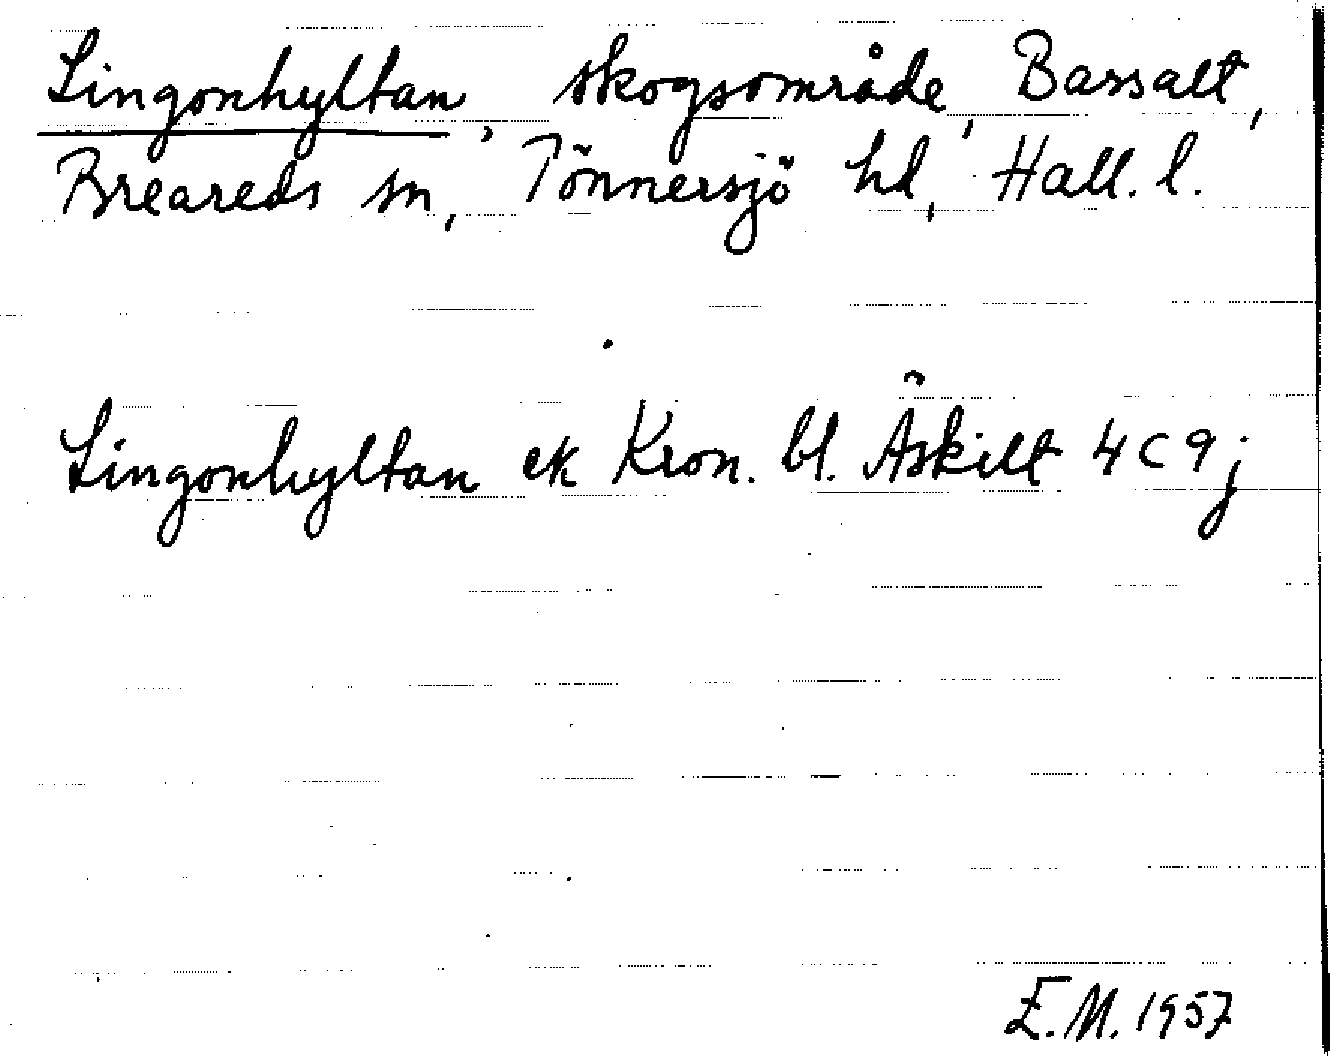 Lingonhyltan, skogsområde, Bassalt,
Breareds sn, Tönnersjö hd, Hall. l.
Lingonhyltan ek Kron. bl. Åskilt 4C9j
E.M. 1957